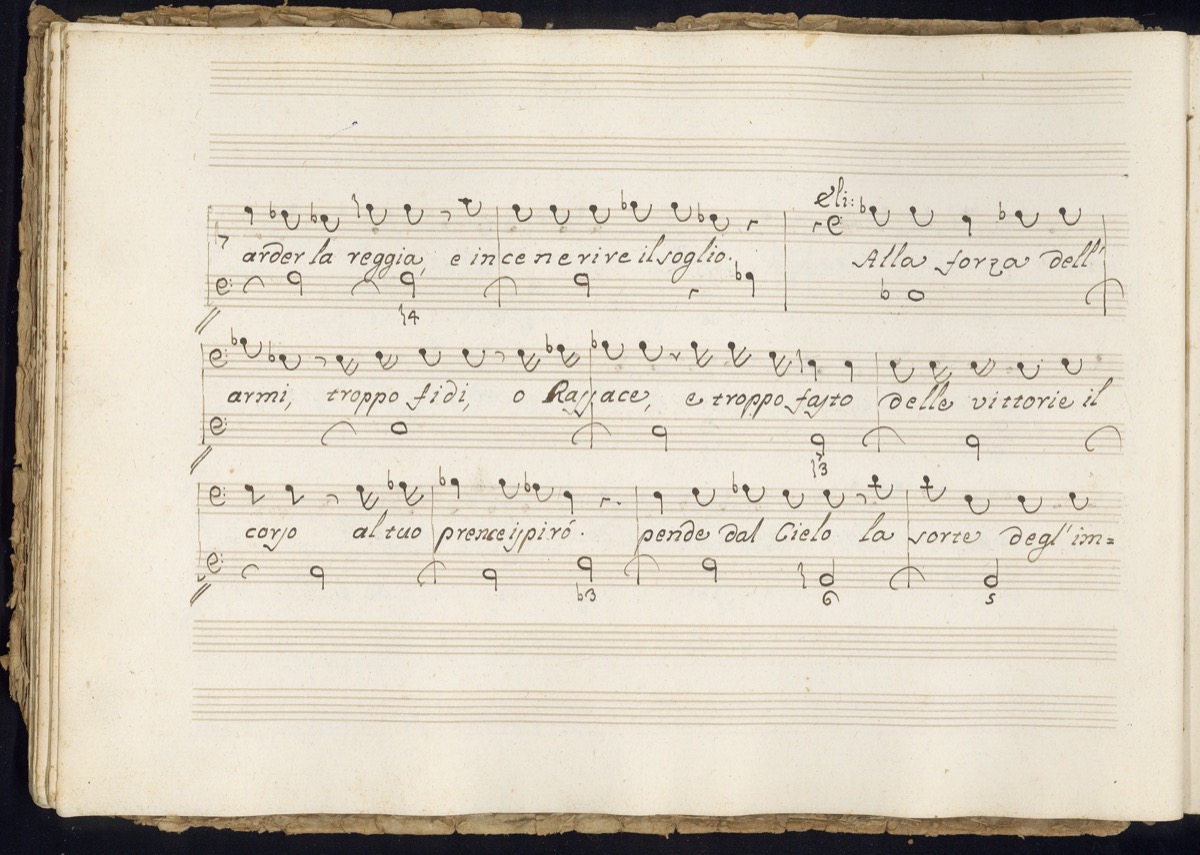 eli:
arder la reggia, e incenerire il soglio. Alla forza dell'
4
armi, troppo fidi, o Rasace, e troppo fasto delle vittorie il
3
corso al tuo prence ispirò. pende dal Cielo la sorte degl' im=
b3 6 5